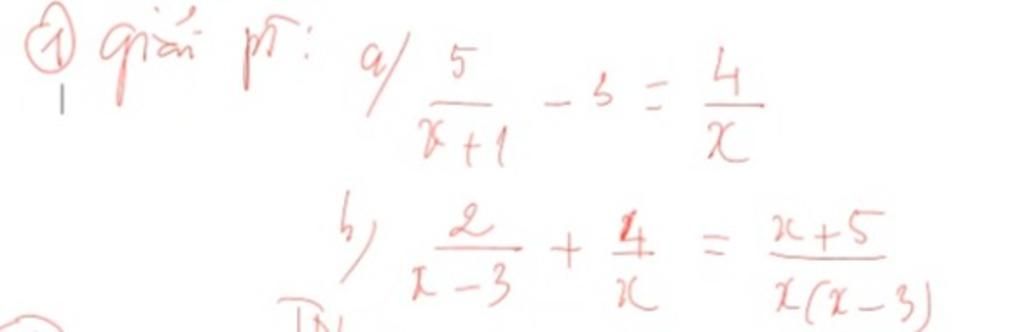 ① giải pt: a/ 5/(x+1) - 3 = 4/x
b/ 2/(x-3) + 4/x = (x+5)/(x(x-3))